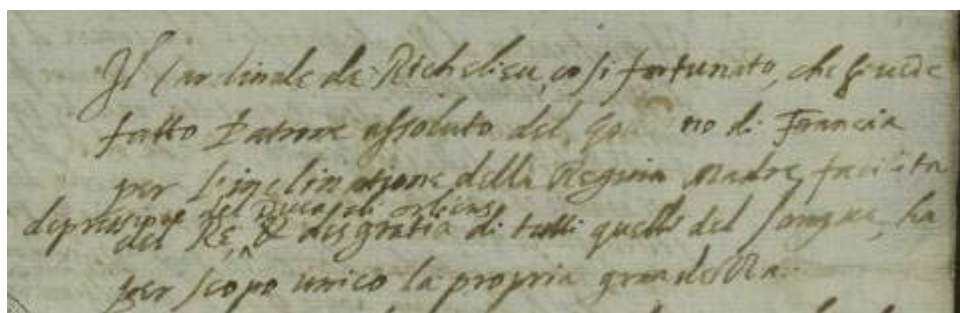 Il Cardinale de Richelieu, così fortunato, che si vede
fatto Patrone assoluto del no di Francia
per l'inclinatione della Regina Madre, facilita
depressione del Duca di orliens
del Re, & disgratia di tutti quelli del sangue, ha
per scopo unico la propria grandezza.